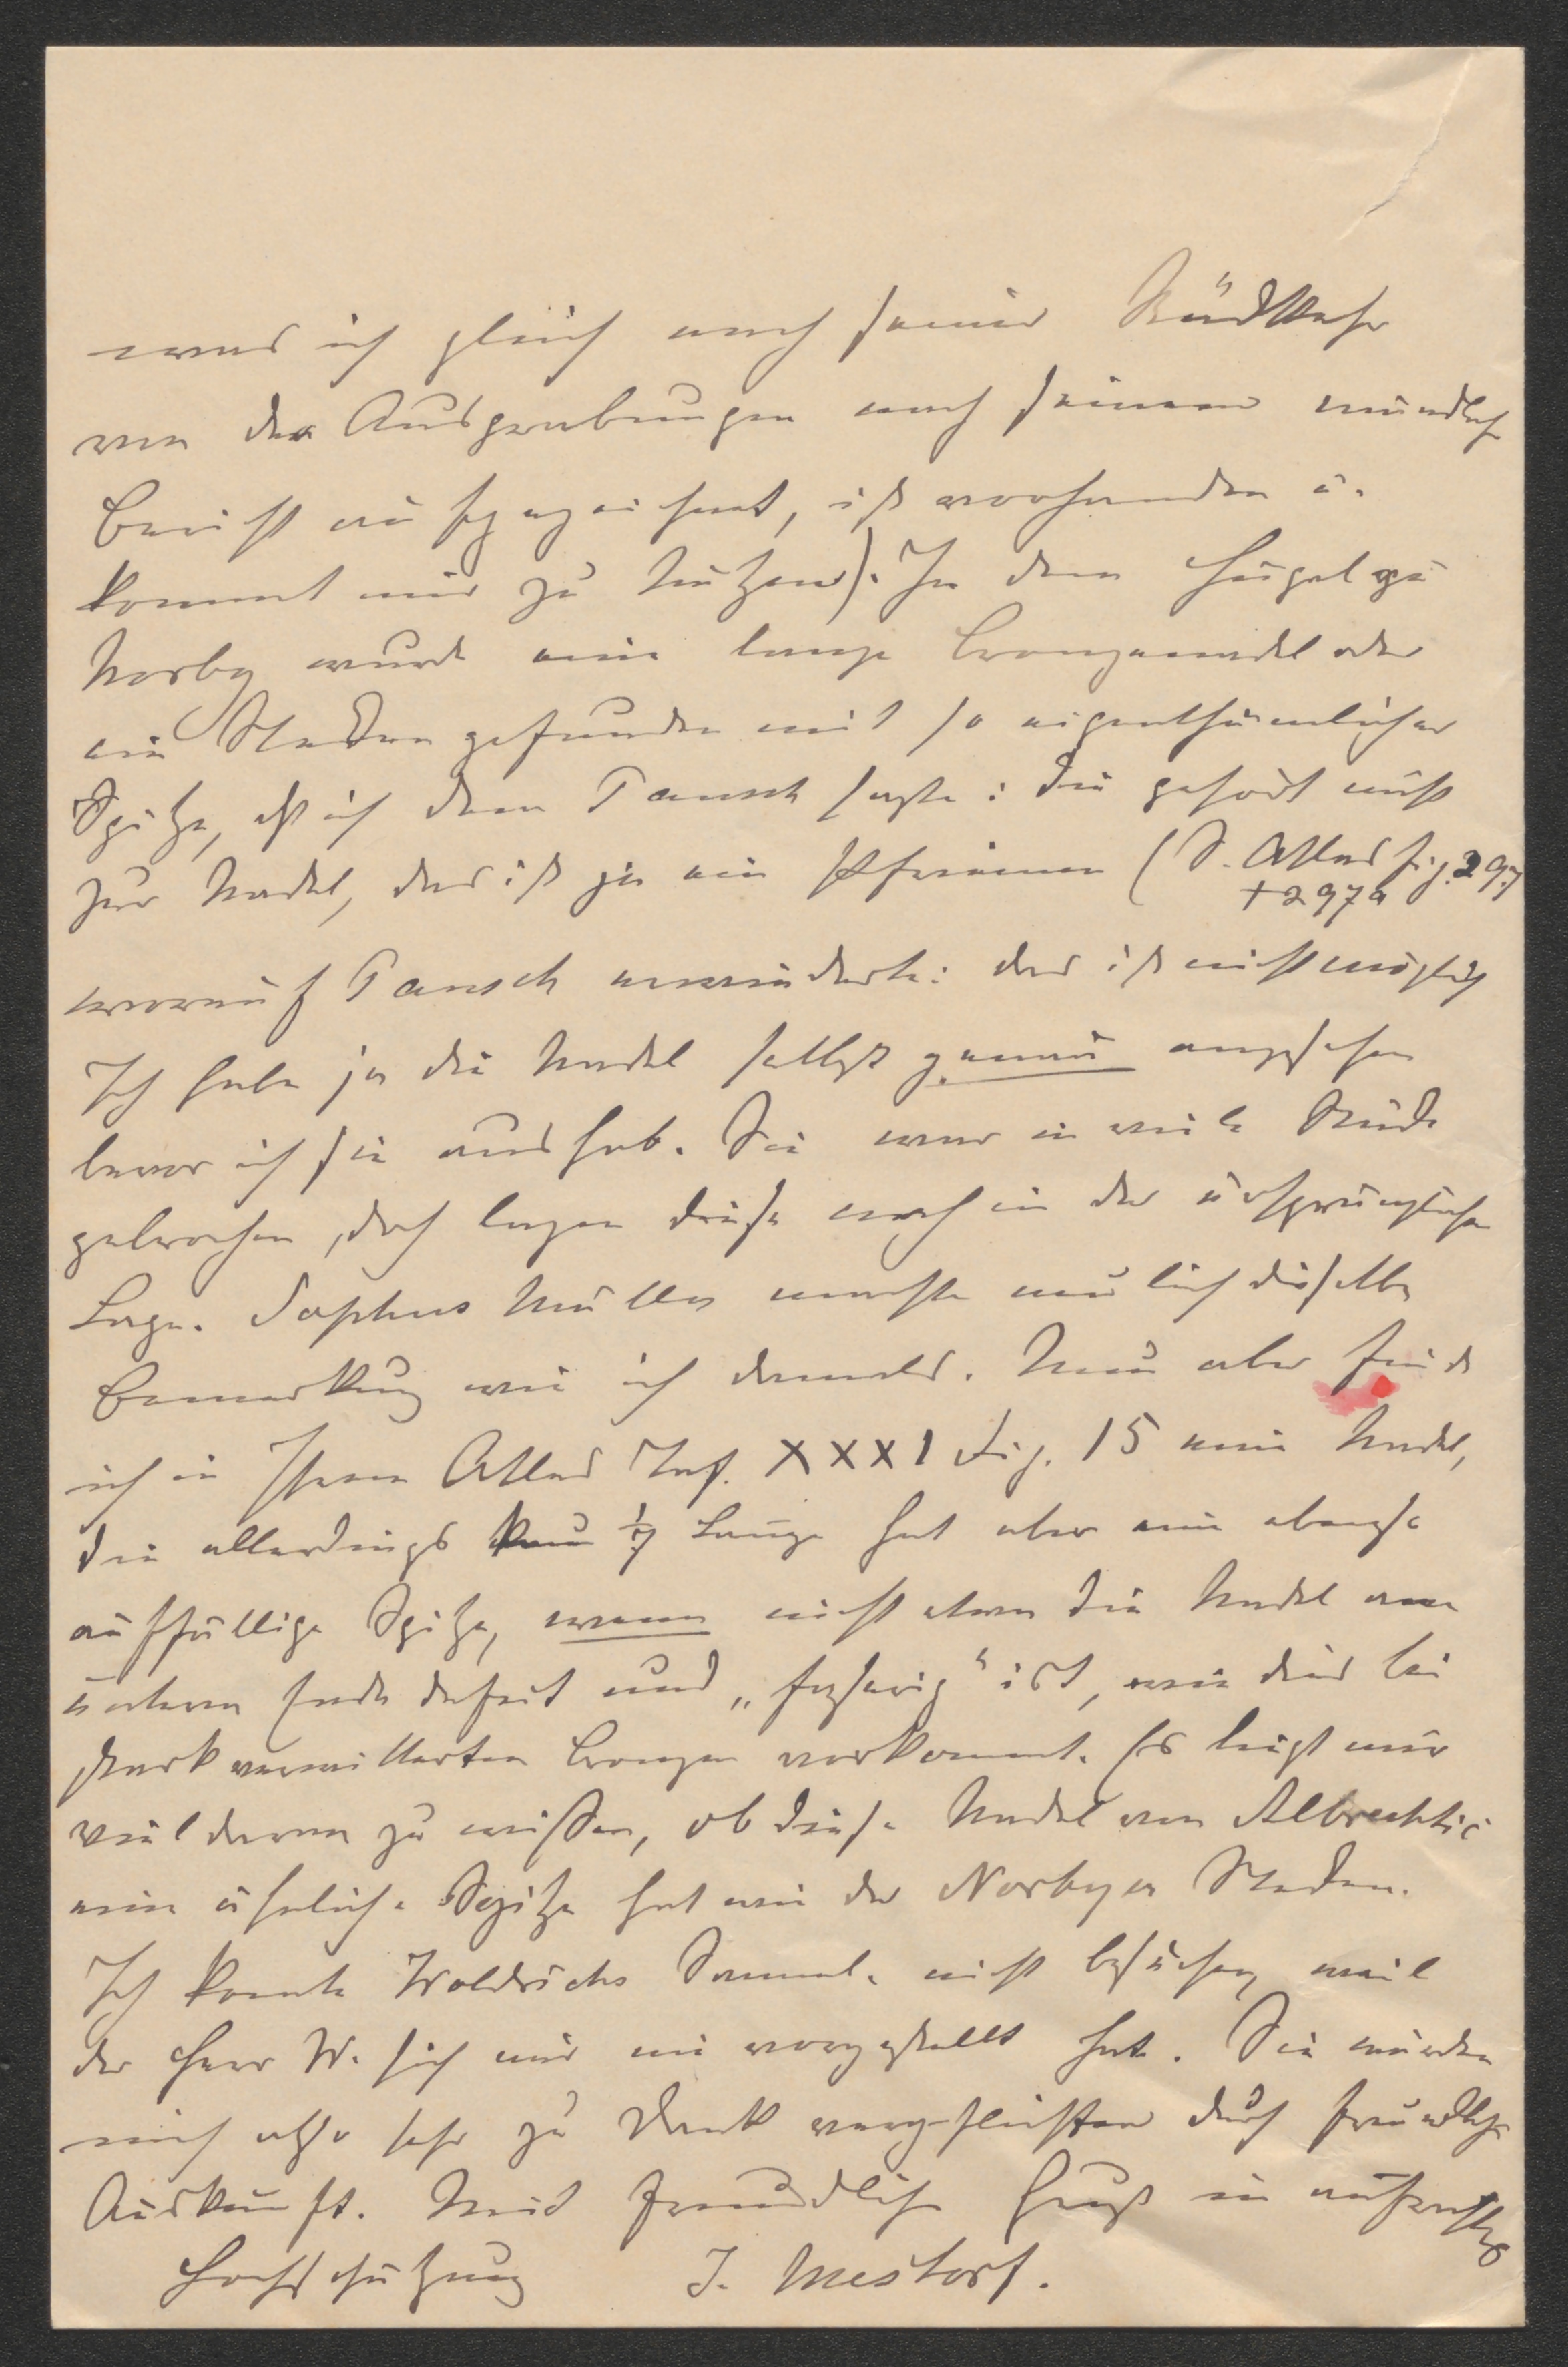 was ich gleich nach seiner Rückkehr
von den Ausgrabungen nach seinem mündlich
Bericht aufgezeichnet, ist vorhanden u.
kommt mir zu Nutzen). In dem Hügel zu
Norby wurde eine lange Bronzenadel oder
ein Stecken gefunden mit so eigenthümlicher
Spitze, daß ich dem Pansch sagte: die gehört nicht
zur Nadel, das ist ja ein Pfriemen (S. Atlas fig. 297
+ 297a
worauf Pansch erwiderte: das ist nicht möglich
Ich habe ja die Nadel selbst genau angesehen
bevor ich sie aushob. Sie war in viele Stücke
gebrochen, doch lagen diese noch in der ursprünglichen
Lage. Sophus Müller machte neulich dieselbe
Bemerkung wie ich damals. Nun aber finde
ich in Ihrem Atlas Taf. XXXI Fig. 15 eine Nadel,
die allerdings kaum Länge hat aber eine ebenso
auffällige Spitze, wenn nicht etwa die Nadel am
unteren Ende defect und „faserig" ist, wie dies bei
stark verwitterten Bronzen vorkommt. Es liegt mir
viel daran zu wissen, ob diese Nadel von Albrechtic
eine ähnliche Spitze hat wie der Norbyer Stecken.
Ich konnte Woldrichs Samml. nicht besuchen, weil
der Herr W. sich mir nie vorgestellt hat. Sie würden
mich also sehr zu Dank verpflichten durch freundliche
Auskunft. Mit freundlichem Gruß in aufrichtiger
Hochschätzung J. Mestorf.